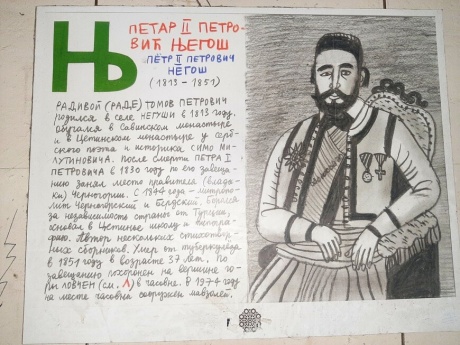 Њ
ПЕТАР II ПЕТРО-
ВИЋ ЊЕГОШ
ПЁТР II ПЕТРОВИЧ
НЕГОШ
(1813 - 1851)
РАДИВОЙ (РАДЕ) ТОМОВ ПЕТРОВИЧ
родился в селе НЕГУШИ в 1813 году,
обучался в Савинском монастыре
и в Цетинском монастыре у серб-
ского поэта и историка СИМО МИ-
ЛУТИНОВИЧА. После смерти ПЕТРА I
ПЕТРОВИЧА в 1830 году по его завеща-
нию занял место правителя (влады-
ки) Черногории. С 1844 года - митропо-
лит Черногорский и Бердский. Боролся
за независимость страны от Турции,
основал в Цетинье школу и типогра-
фию. Автор нескольких стихотвор-
ных сборников. Умер от туберкулёза
в 1851 году в возрасте 37 лет. По
завещанию похоронен на вершине го-
ры ЛОВЧЕН (см. Л) в часовне. В 1974 году
на месте часовни сооружён мавзолей.